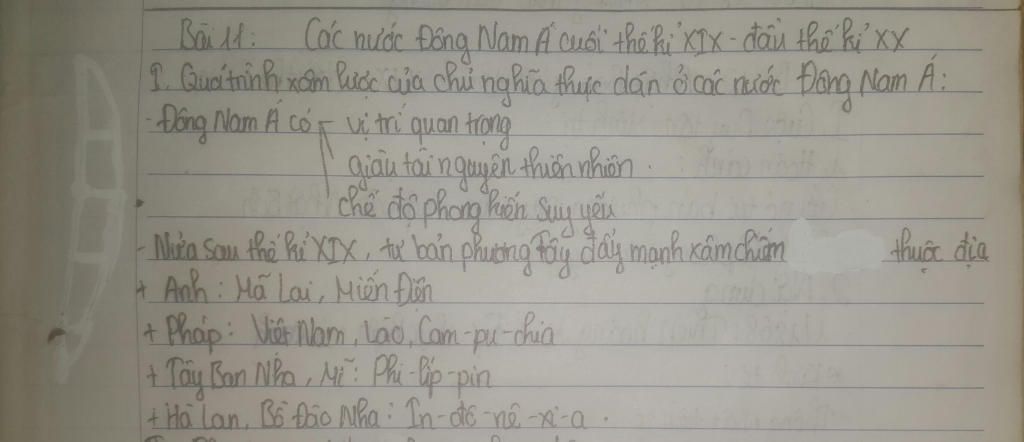 Bài 11: Các nước Đông Nam Á cuối thế kỉ XIX - đầu thế kỉ XX
I. Quá trình xâm lược của chủ nghĩa thực dân ở các nước Đông Nam Á:
- Đông Nam Á có vị trí quan trọng
giàu tài nguyên thiên nhiên.
chế độ phong kiến suy yếu
- Nửa sau thế kỉ XIX, tư bản phương Tây đẩy mạnh xâm chiếm thuộc địa
+ Anh: Mã Lai, Miến Điện
+ Pháp: Việt Nam, Lào, Cam-pu-chia
+ Tây Ban Nha, Mĩ: Phi-líp-pin
+ Hà Lan, Bồ Đào Nha: In-đô-nê-xi-a.